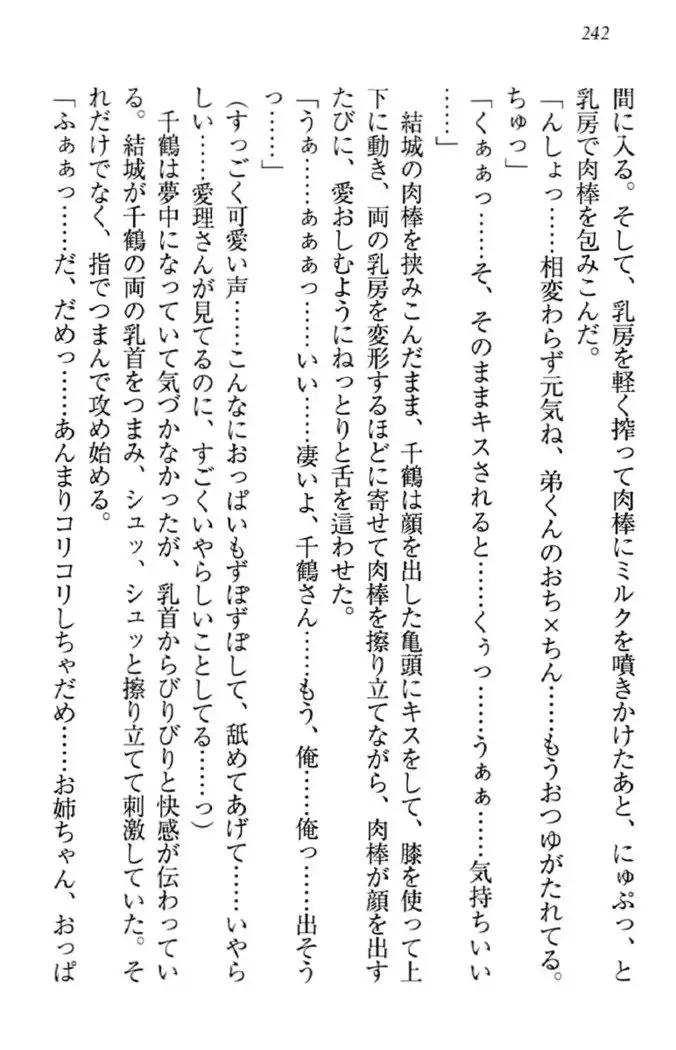 242
間に入る。そして、乳房を軽く搾って肉棒にミルクを噴きかけたあと、にゅぷっ、と
乳房で肉棒を包みこんだ。
「んしょっ……相変わらず元気ね、弟くんのおち×ちん……もうおつゆがたれてる。
ちゅっ」
「くぁぁっ……そ、そのままキスされると……くぅっ……うぁぁ……気持ちいい
……」
結城の肉棒を挟みこんだまま、千鶴は顔を出した亀頭にキスをして、膝を使って上
下に動き、両の乳房を変形するほどに寄せて肉棒を擦り立てながら、肉棒が顔を出す
たびに、愛おしむようにねっとりと舌を這わせた。
「うぁ……ぁぁぁっ……いい……凄いよ、千鶴さん……もう、俺……俺っ……出そう
っ……」
(すっごく可愛い声……こんなにおっぱいもずぽずぽして、舐めてあげて……いやら
しい……愛理さんが見てるのに、すごくいやらしいことしてる……っ)
千鶴は夢中になっていて気づかなかったが、乳首からびりびりと快感が伝わってい
る。結城が千鶴の両の乳首をつまみ、シュッ、シュッと擦り立てて刺激していた。そ
れだけでなく、指でつまんで攻め始める。
「ふぁぁっ……だ、だめっ……あんまりコリコリしちゃだめ……お姉ちゃん、おっぱ